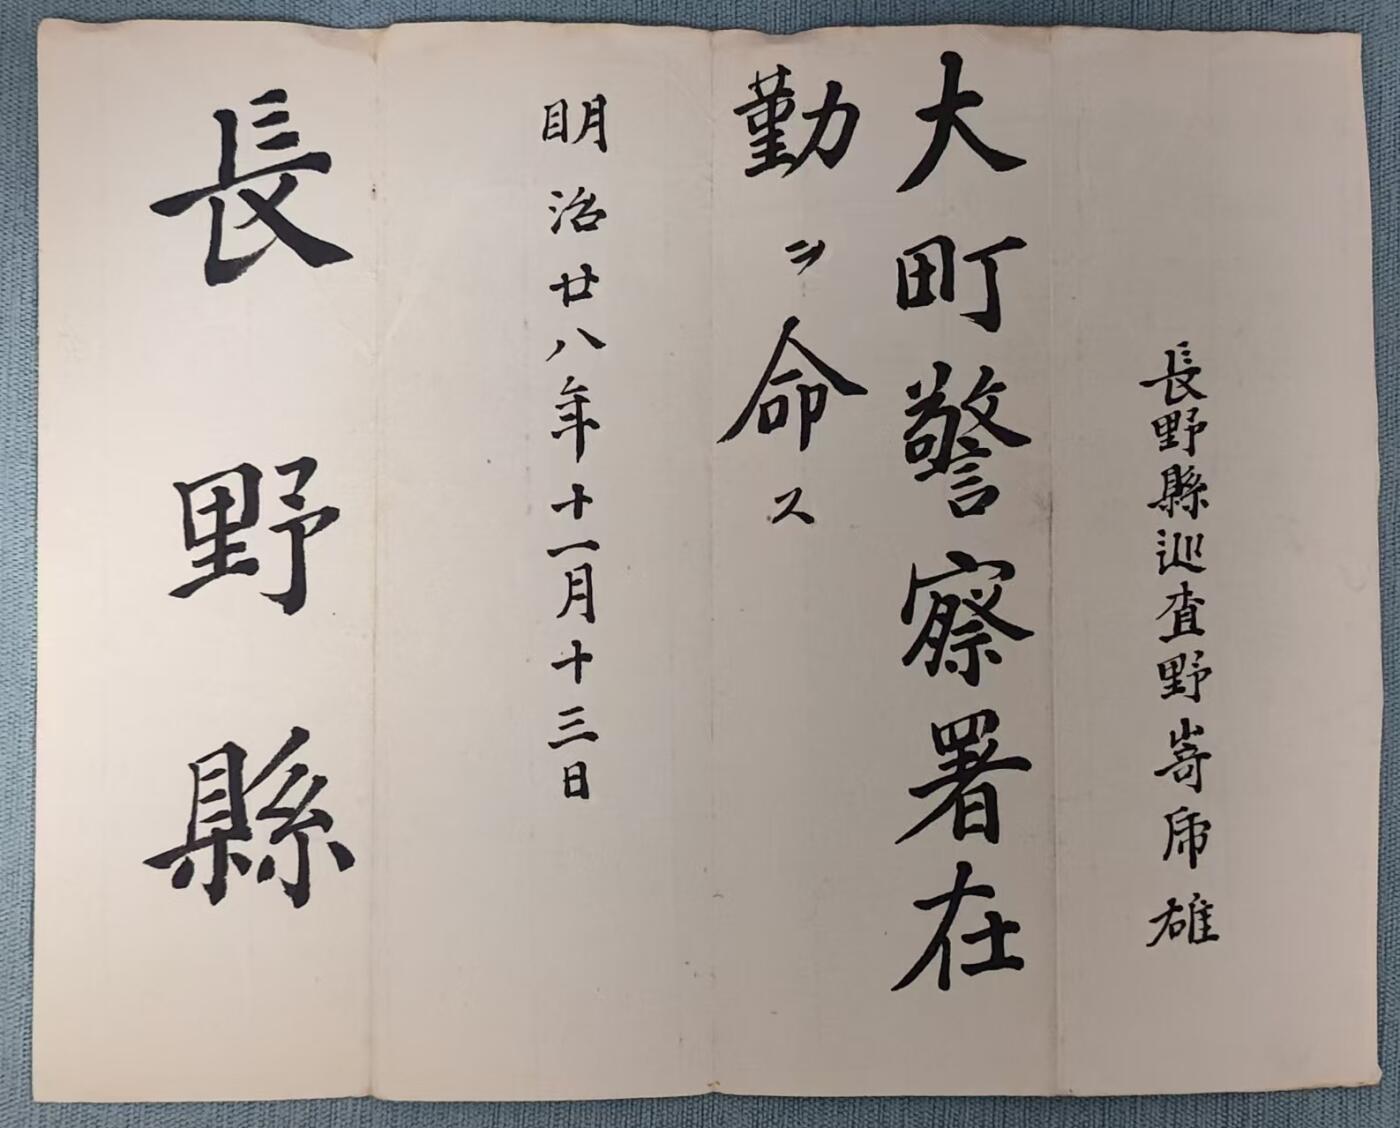 長野縣巡査野嵜乕雄
大町警察署在
勤ヲ命ス
明治廿八年十一月十三日
長野縣